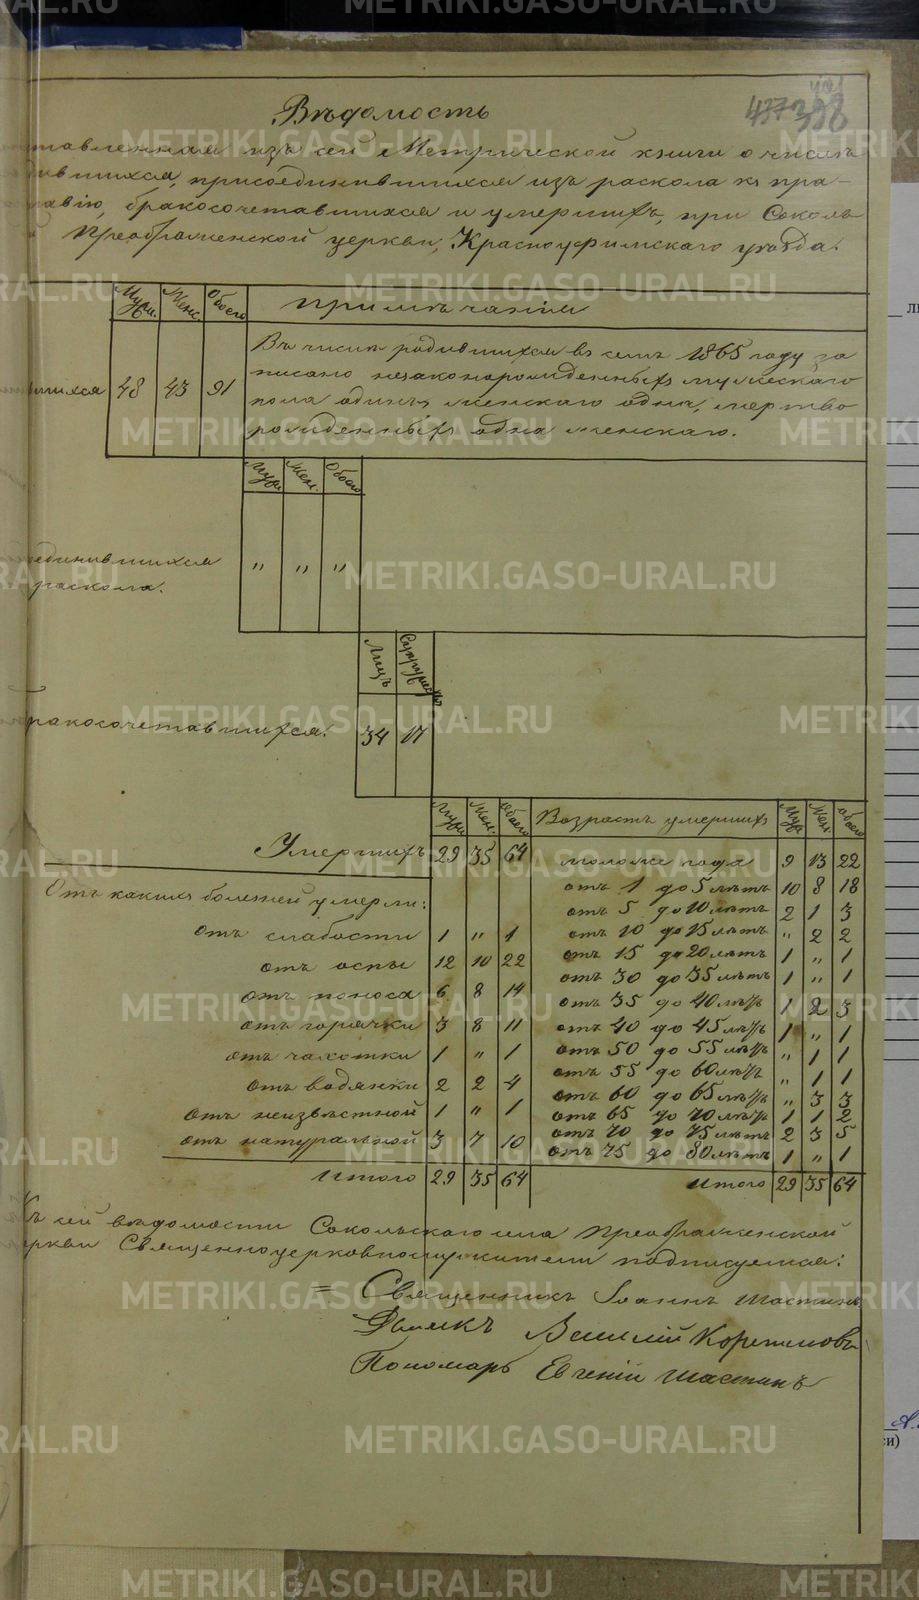 Вѣдомость
ставленная изъ сей Метрической книги о числѣ
дившихся, присоединившихся изъ раскола къ пра-
славію, бракосочетавшихся и умершихъ, при Соколь-
й Преображенской церкви, Красноуфимскаго уѣзда.
Муж. Жен. Обоего Примѣчанія
дившихся 48 43 91
Въ числѣ родившихся въ семъ 1865 году за
писано незаконорожденныхъ мужескаго
пола одинъ, женскаго одна, мертво
рожденныхъ одна женскаго.
Муж. Жен. Обоего
соединившихся
раскола. " " "
Лицъ Супружествъ
ракосочетавшихся. 34 17
Муж. Жен. Обоего Возрастъ умершихъ Муж. Жен. Обоего
Умершихъ 29 35 64 моложе года 9 13 22
Отъ какихъ болезней умерли: отъ 1 до 5 лѣтъ 10 8 18
отъ 5 до 10 лѣтъ 2 1 3
отъ слабости 1 " 1 отъ 10 до 15 лѣтъ " 2 2
отъ оспы 12 10 22 отъ 15 до 20 лѣтъ 1 " 1
отъ 30 до 35 лѣтъ 1 " 1
отъ поноса 6 8 14 отъ 35 до 40 лѣтъ 1 2 3
отъ горячки 3 8 11 отъ 40 до 45 лѣтъ 1 " 1
отъ чахотки 1 " 1 отъ 50 до 55 лѣтъ " 1 1
отъ водянки 2 2 4 отъ 55 до 60 лѣтъ " 1 1
отъ 60 до 65 лѣтъ " 3 3
отъ неизвѣстной 1 " 1 отъ 65 до 70 лѣтъ 1 1 2
отъ натуральной 3 7 10 отъ 70 до 75 лѣтъ 2 3 5
отъ 75 до 80 лѣтъ 1 " 1
Итого 29 35 64 Итого 29 35 64
Къ сей вѣдомости Сокольскаго села Преображенской
церкви Священноцерковнослужители подписуемся:
Священникъ Іоаннъ Шастинъ
Дьячекъ Василій
Пономарь Евгеній Шастинъ
METRIKI.GASO-URAL.RU